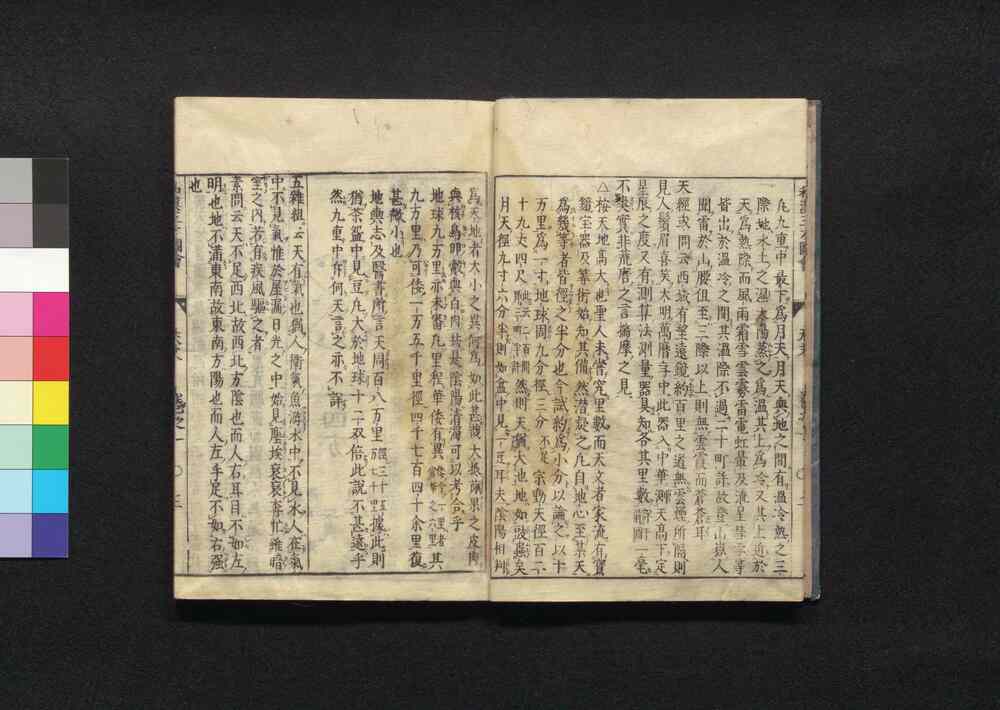 凡九重中最下爲月天月天與地之間有溫冷熱之三
際地水土之濕太陽蒸之爲溫其上爲冷又其上近於
天爲熱際而風雨霜雪雲霧雷電虹暈及流星彗孛等
皆出於溫冷之間其溫際不過二十町許故登山嶽人
聞雷於山腰但至三際以上則無雲霞而蒼蒼耳
天經或問云西域有望遠鏡約百里之遠無雲煙所隔則
見人鬚眉喜笑大明萬曆年中此器入中華測天高下定
星辰之度又有測算法測量器具知各其里數一毫
不差實非荒唐之言揣摩之見
△按天地高大也聖人未嘗究里數而天文者家流有寶
鏡宝器及算術始知其備然潜疑之凡自地心至某天
爲幾等者皆徑之半分也今試約爲小分以論之以十
万里爲一寸地球周九分徑三分不足宗動天徑百二
十九丈四尺 然則天猶大池地如浮蟲矣
月天徑九寸六分半則如盒中見一豆耳夫陰陽相判
爲天地者大小之異何爲如此甚哉大抵菓果之皮肉
與核鳥卵殼與白肉皆是陰陽清濁可以考合乎
地球九万里亦未審凡里程華倭有異 其
九万里乃可倭一万五千里徑四千七百四十余里復
甚微小也
地輿志及醫書所言天周百八万里 據此則
猶茶盌中見豆凡大於地球十二双倍此說不甚遠乎
然九重中斥何天言之亦不詳
五雜組云天有氣也猶人衞氣魚游水中不見水人在氣
中不見氣惟於屋漏日光之中始見塵埃袞袞奔忙雖暗
室之內若有疾風驅之者
素問云天不足西北故西北方陰也而人右耳目不如左
明也地不滿東南故東南方陽也而人左手足不如右强
也